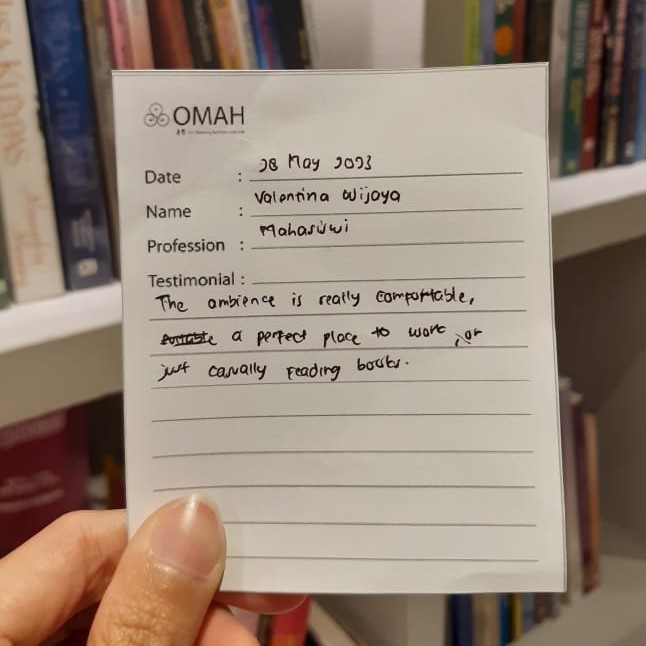 OMAH
Date : 28 May 2023
Name : Valentina Wijaya
Profession : Mahasiswi
Testimonial :
The ambience is really comfortable,
suitable a perfect place to work, or
just casually reading books.